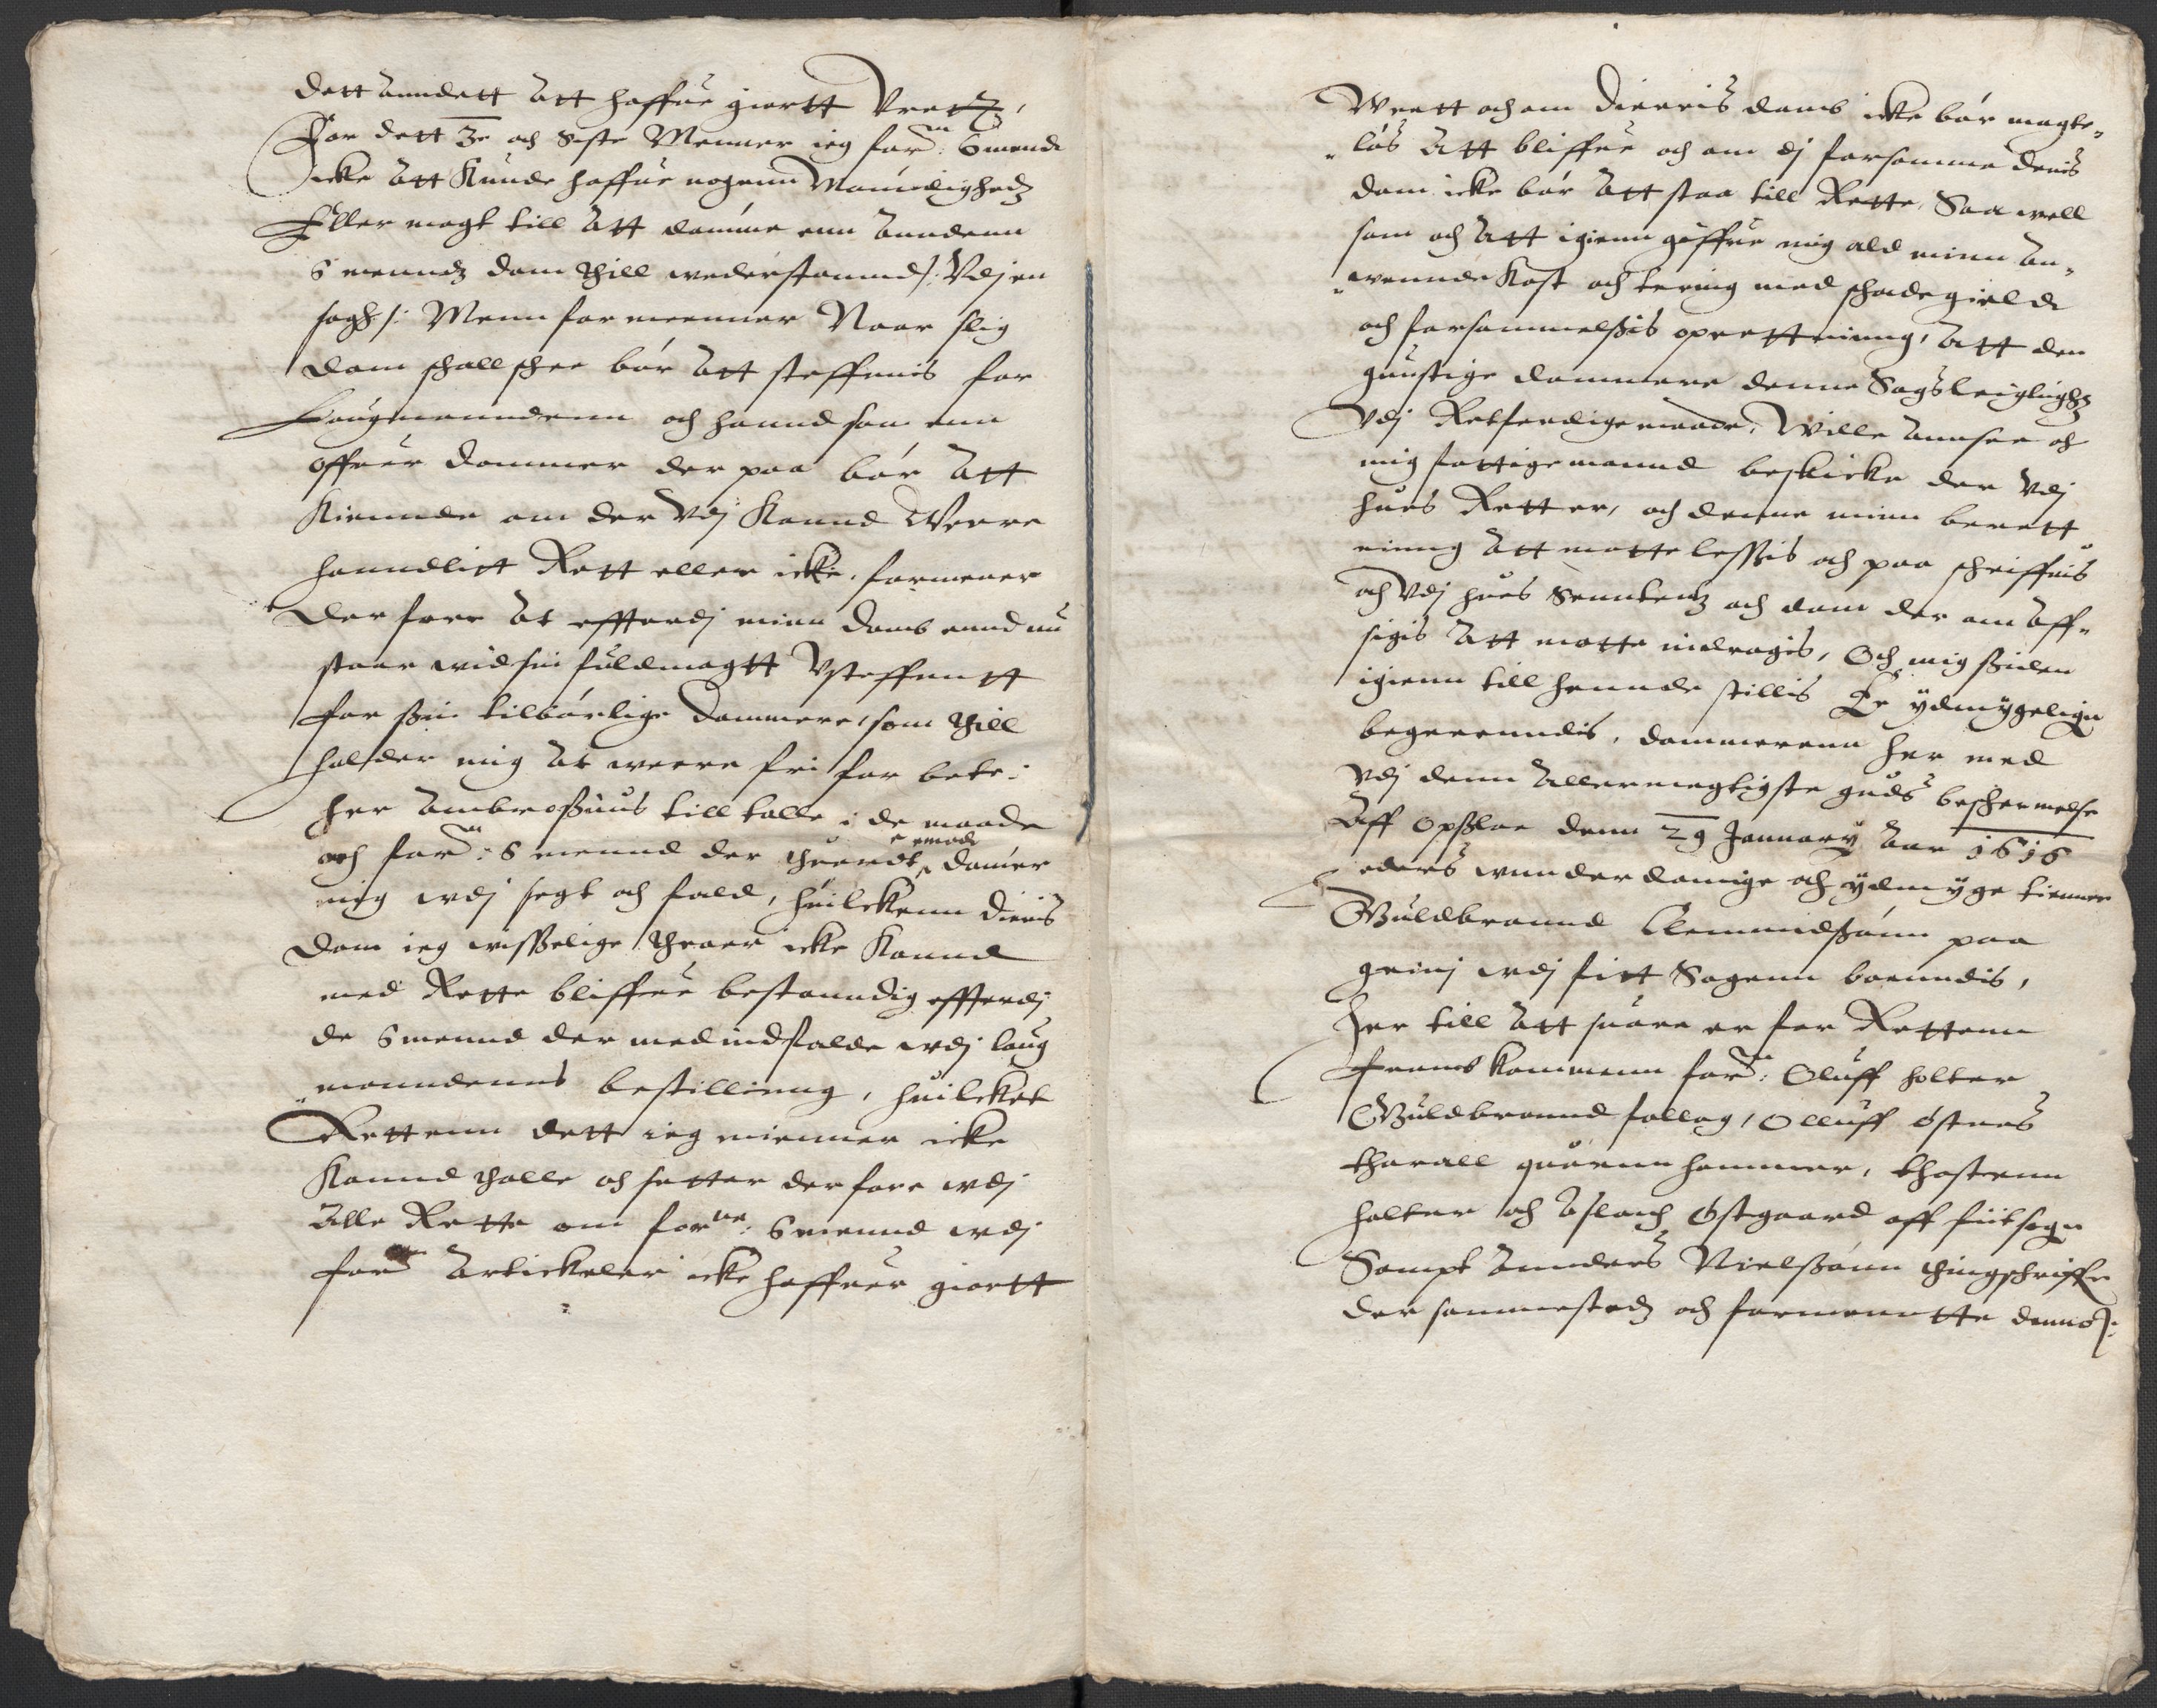 dett anndett att haffue giortt Vrett,
For dett 3e och siste Menner ieg forne: 6 mend
icke att Kunde haffue nogenn Mÿndighedz
Eller magt till att dømme enn anndenn
6 menndz dom thill wederstannd /: Vdj en
sagh /: Menn formeenner Naar slig
dom schall schee bør att steffnis for
Laugmanndenn och hannd som enn
offuer dommer der paa bør att
Kiennde om der vdj Kannd Werre
hanndlitt Rett eller icke, formener
der fore at effterdj minn domb ennd nu
staar wid sin fuldmagtt Vsteffnett
for sin tilbørlige dommere, som thill
holder mig at weere fri for bete:
her Ambrosius till talle i de maade
och forne: 6 mennd der thuerdt emod dømer
mig vdj segt och fald, huilckenn dieris
dom ieg wisselige throer icke Kannd
med Rette bliffue bestanndig effterdj
de 6 mennd der med indfalde vdj laug
manndenns bestillinng, huilcket
Rettenn dett ieg mienner icke
Kannd thaalle och setter der fore vdj
alle Rette om forne: 6 mennd vdj
forne Artickeler icke haffuer giortt
Wrett och om dieris domb icke bør magte-
løs att bliffue och om dj forsamme deris
dom icke bør att staa till Rette, Saa well
som och att igienn giffue mig ald minn an-
wennde Kost och tering med schadegield
och forsømmelssis oprettninng, att den
gunstige dommere denne Sags leiglighedz
Vdj Retferdige maade, Wille annsee och
mig fattige mannd beskicke der vdj
hues Rett er, och denne minn berett
ninng att motte lessis och paa schriffuis
och vdj hues Senntentz och dom der om aff-
sigis att motte inndragis, Och mig siden
igienn till hennde stillis Er ydmygeligen
begerenndis, dommerenn her med
vdj denn Allermegtigste guds beschermelse
Aff Opsloe denn 29 January Aar 1616
eders wnnderdanige och ydmyge tienner
Guldbrannd Clemmidssønn paa
grinj vdj fitt Sogenn boenndis,
Her till att suare er for Rettenn
fremb Kommenn forne: Oluff holter
Guldbrannd follaug, Olluff østnes
tharall quørnn hammer, thostenn
holter och Aslach Østgaard aff fiitsogn
Sampt Annders Nielssønn thingschriffer
der sammestedz och formenntte denno/: